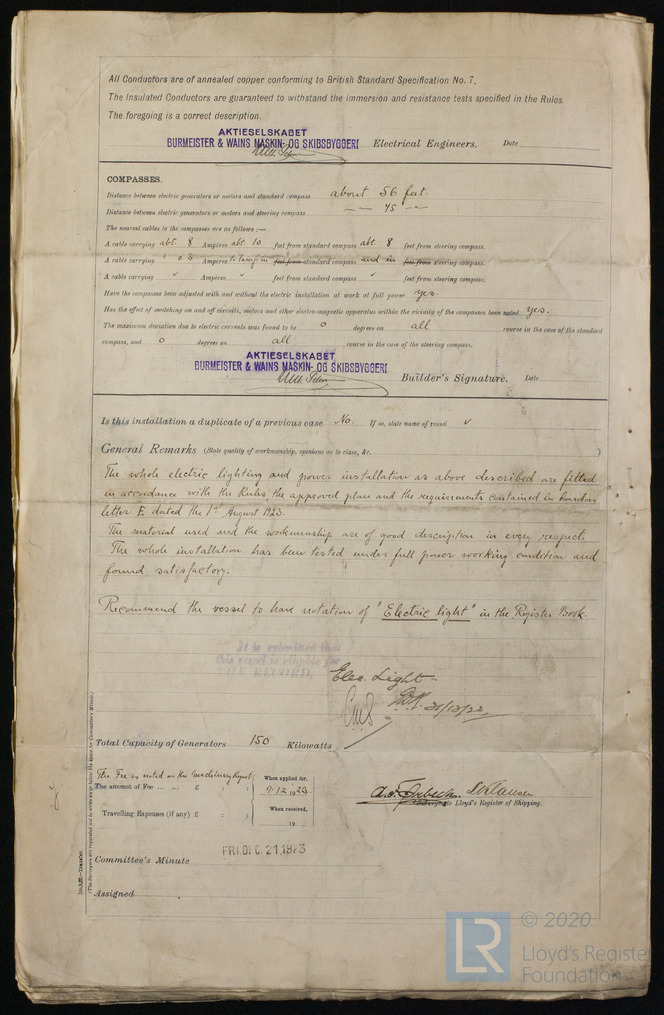 All Conductors are of annealed copper conforming to British Standard Specification No. 7.
The Insulated Conductors are guaranteed to withstand the immersion and resistance tests specified in the Rules.
The foregoing is a correct description.
AKTIESELSKABET
BURMEISTER & WAINS MASKIN- OG SKIBSBYGGERI Electrical Engineers. Date
COMPASSES.
Distance between electric generators or motors and standard compass about 56 feet
Distance between electric generators or motors and steering compass — 45 —
The nearest cables to the compasses are as follows :—
A cable carrying abt. 8 Ampères abt. 10 feet from standard compass abt. 8 feet from steering compass.
A cable carrying 0.3 Ampères to lamp in feet from standard compass and in feet from steering compass.
A cable carrying ✓ Ampères ✓ feet from standard compass ✓ feet from steering compass.
Have the compasses been adjusted with and without the electric installation at work at full power yes.
Has the effect of switching on and off circuits, motors and other electro-magnetic apparatus within the vicinity of the compasses been noted yes.
The maximum deviation due to electric currents was found to be 0 degrees on all course in the case of the standard
compass, and 0 degrees on all course in the case of the steering compass.
AKTIESELSKABET
BURMEISTER & WAINS MASKIN- OG SKIBSBYGGERI Builder's Signature. Date
Is this installation a duplicate of a previous case No. If so, state name of vessel ✓
General Remarks (State quality of workmanship, opinions as to class, &c. )
The whole electric lighting and power installation as above described are fitted
in accordance with the Rules, the approved plan and the requirements contained in London
letter E dated the 1st August 1923.
The material used and the workmanship are of good description in every respect.
The whole installation has been tested under full power working condition and
found satisfactory.
Recommend the vessel to have notation of "Electric light" in the Register Book.
It is submitted that
this vessel is eligible for
THE RECORD.
Elec. Light
21/12/23
Total Capacity of Generators 150 Kilowatts
The Fee is noted on the Machinery Report
The amount of Fee ... ... £ : :
When applied for,
9.12.1923.
Travelling Expenses (if any) £ : :
When received,
19
Surveyor to Lloyd's Register of Shipping.
Committee's Minute FRI. DEC. 21 1923
Assigned
(The Surveyors are requested not to write on or below the space for Committee's Minute.)
© 2020
LR
Lloyd's Register
Foundation